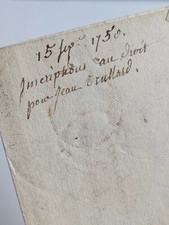 15 sep.e 1750.
Inscriptions au droit
pour Jean Trullard.